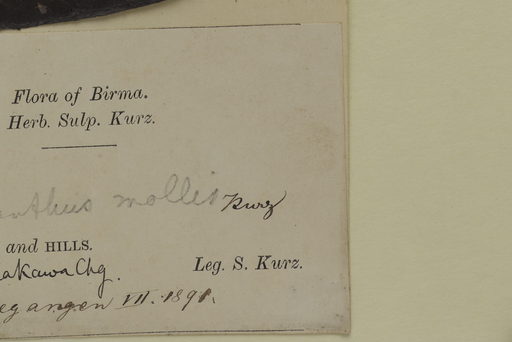 Flora of Birma.
Herb. Sulp. Kurz.
anthus mollis Kurz
and HILLS.
akawa Chg. Leg. S. Kurz.
egangen VII. 1891.